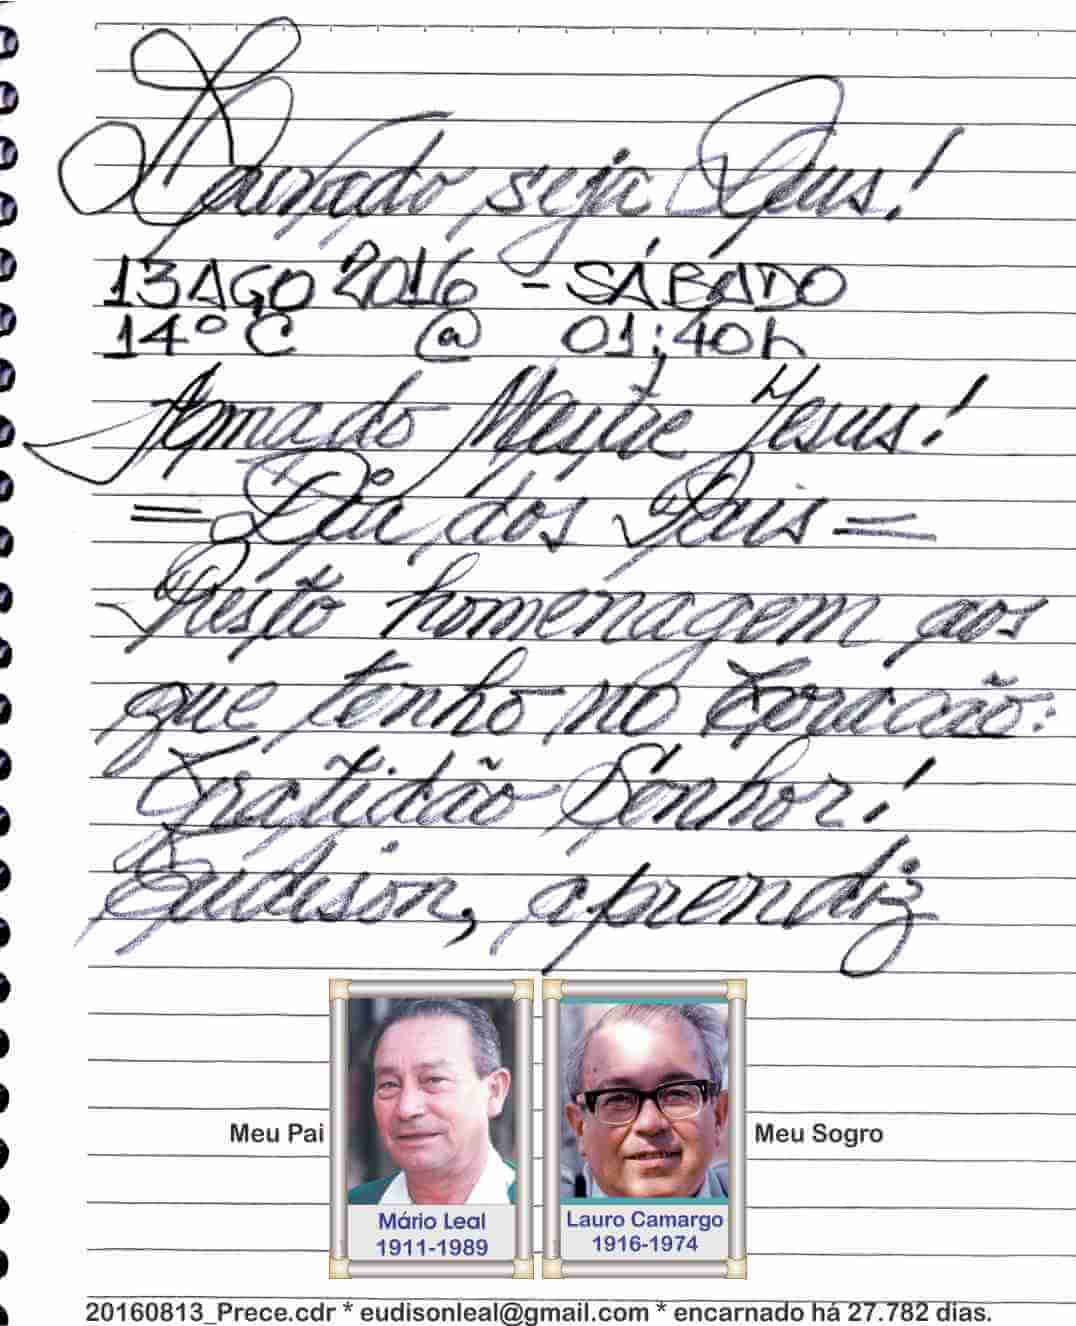 Louvado seja Deus!
13 AGO 2016 - SÁBADO
14°C @ 01:40h
Amado Mestre Jesus!
= Dia dos Pais =
Presto homenagem aos
que tenho no Coração.
Gratidão Senhor!
Eudison, aprendiz
Meu Pai
Meu Sogro
Mário Leal
1911-1989
Lauro Camargo
1916-1974
20160813_Prece.cdr * eudisonleal@gmail.com * encarnado há 27.782 dias.